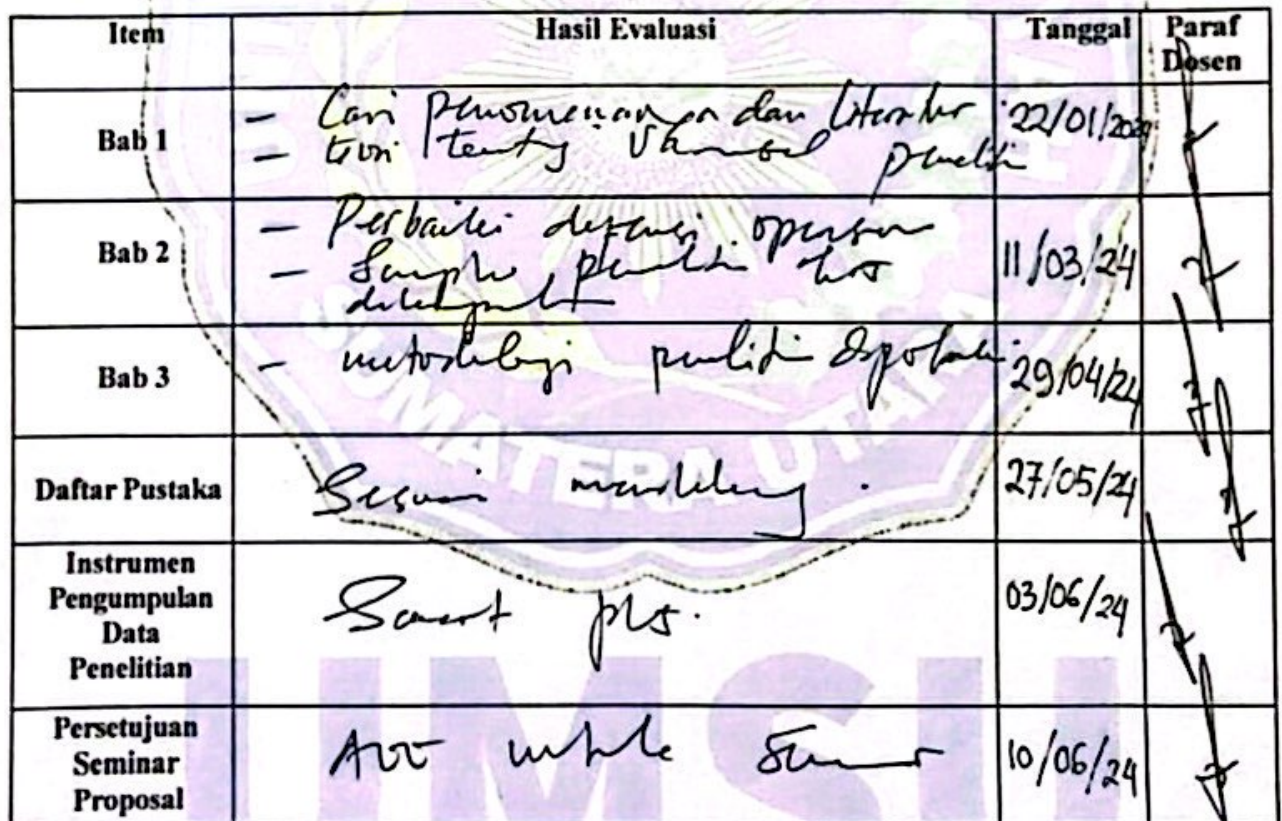 Item Hasil Evaluasi Tanggal Paraf Dosen
Bab 1
- Cari penomena dan literatur
- teori tentang Variabel peneliti
22/01/2024
Bab 2
- Perbaiki definisi operasi
- Sampel peneliti harus
11/03/24
Bab 3
- metodologi peneliti diperbaiki
29/04/24
Daftar Pustaka
Sesuai mendeley.
27/05/24
Instrumen
Pengumpulan
Data
Penelitian
Smart pls.
03/06/24
Persetujuan
Seminar
Proposal
ACC untuk Seminar
10/06/24
SUMATERA UTARA
UMSU